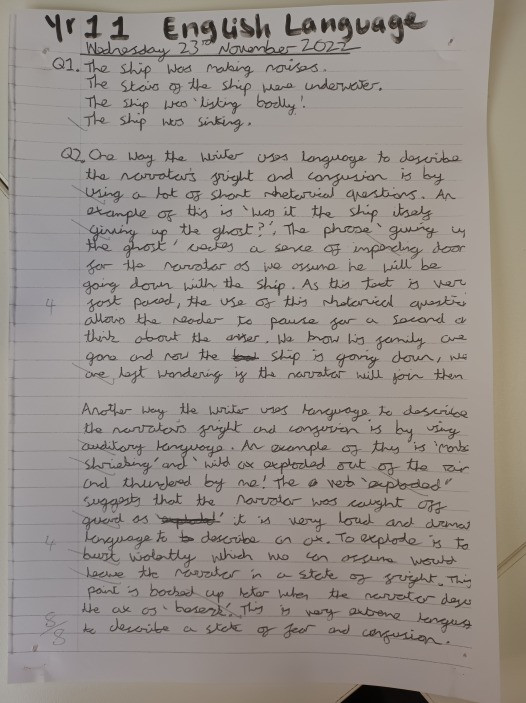 Yr 11 English Language
Wednesday 23rd November 2022
Q1. The ship was making noises.
The stairs of the ship were underwater.
The ship was 'listing badly'.
The ship was sinking.
Q2. One way the writer uses language to describe
the narrator's fright and confusion is by
using a lot of short rhetorical questions. An
example of this is 'was it the ship itself
giving up the ghost?'. The phrase 'giving up
the ghost' creates a sense of impending door
for the narrator as we assume he will be
going down with the ship. As this text is very
4 fast paced, the use of this rhetorical question
allows the reader to pause for a second a
think about the answer. We know his family are
gone and now the ship is going down, we
are left wondering if the narrator will join them
Another way the writer uses language to describe
the narrator's fright and confusion is by using
auditory language. An example of this is
shrieking' and 'wild ox exploded out of the rain
and thundered by me! The verb 'exploded"
suggests that the narrator was caught off
guard as it is very loud and
4 language to describe an ox. To explode is to
burst violently which we can assume would
leave the narrator in a state of fright. This
point is backed up later when the narrator
the ox as 'beserk'. This is very extreme language
8/8 to describe a state of fear and confusion.